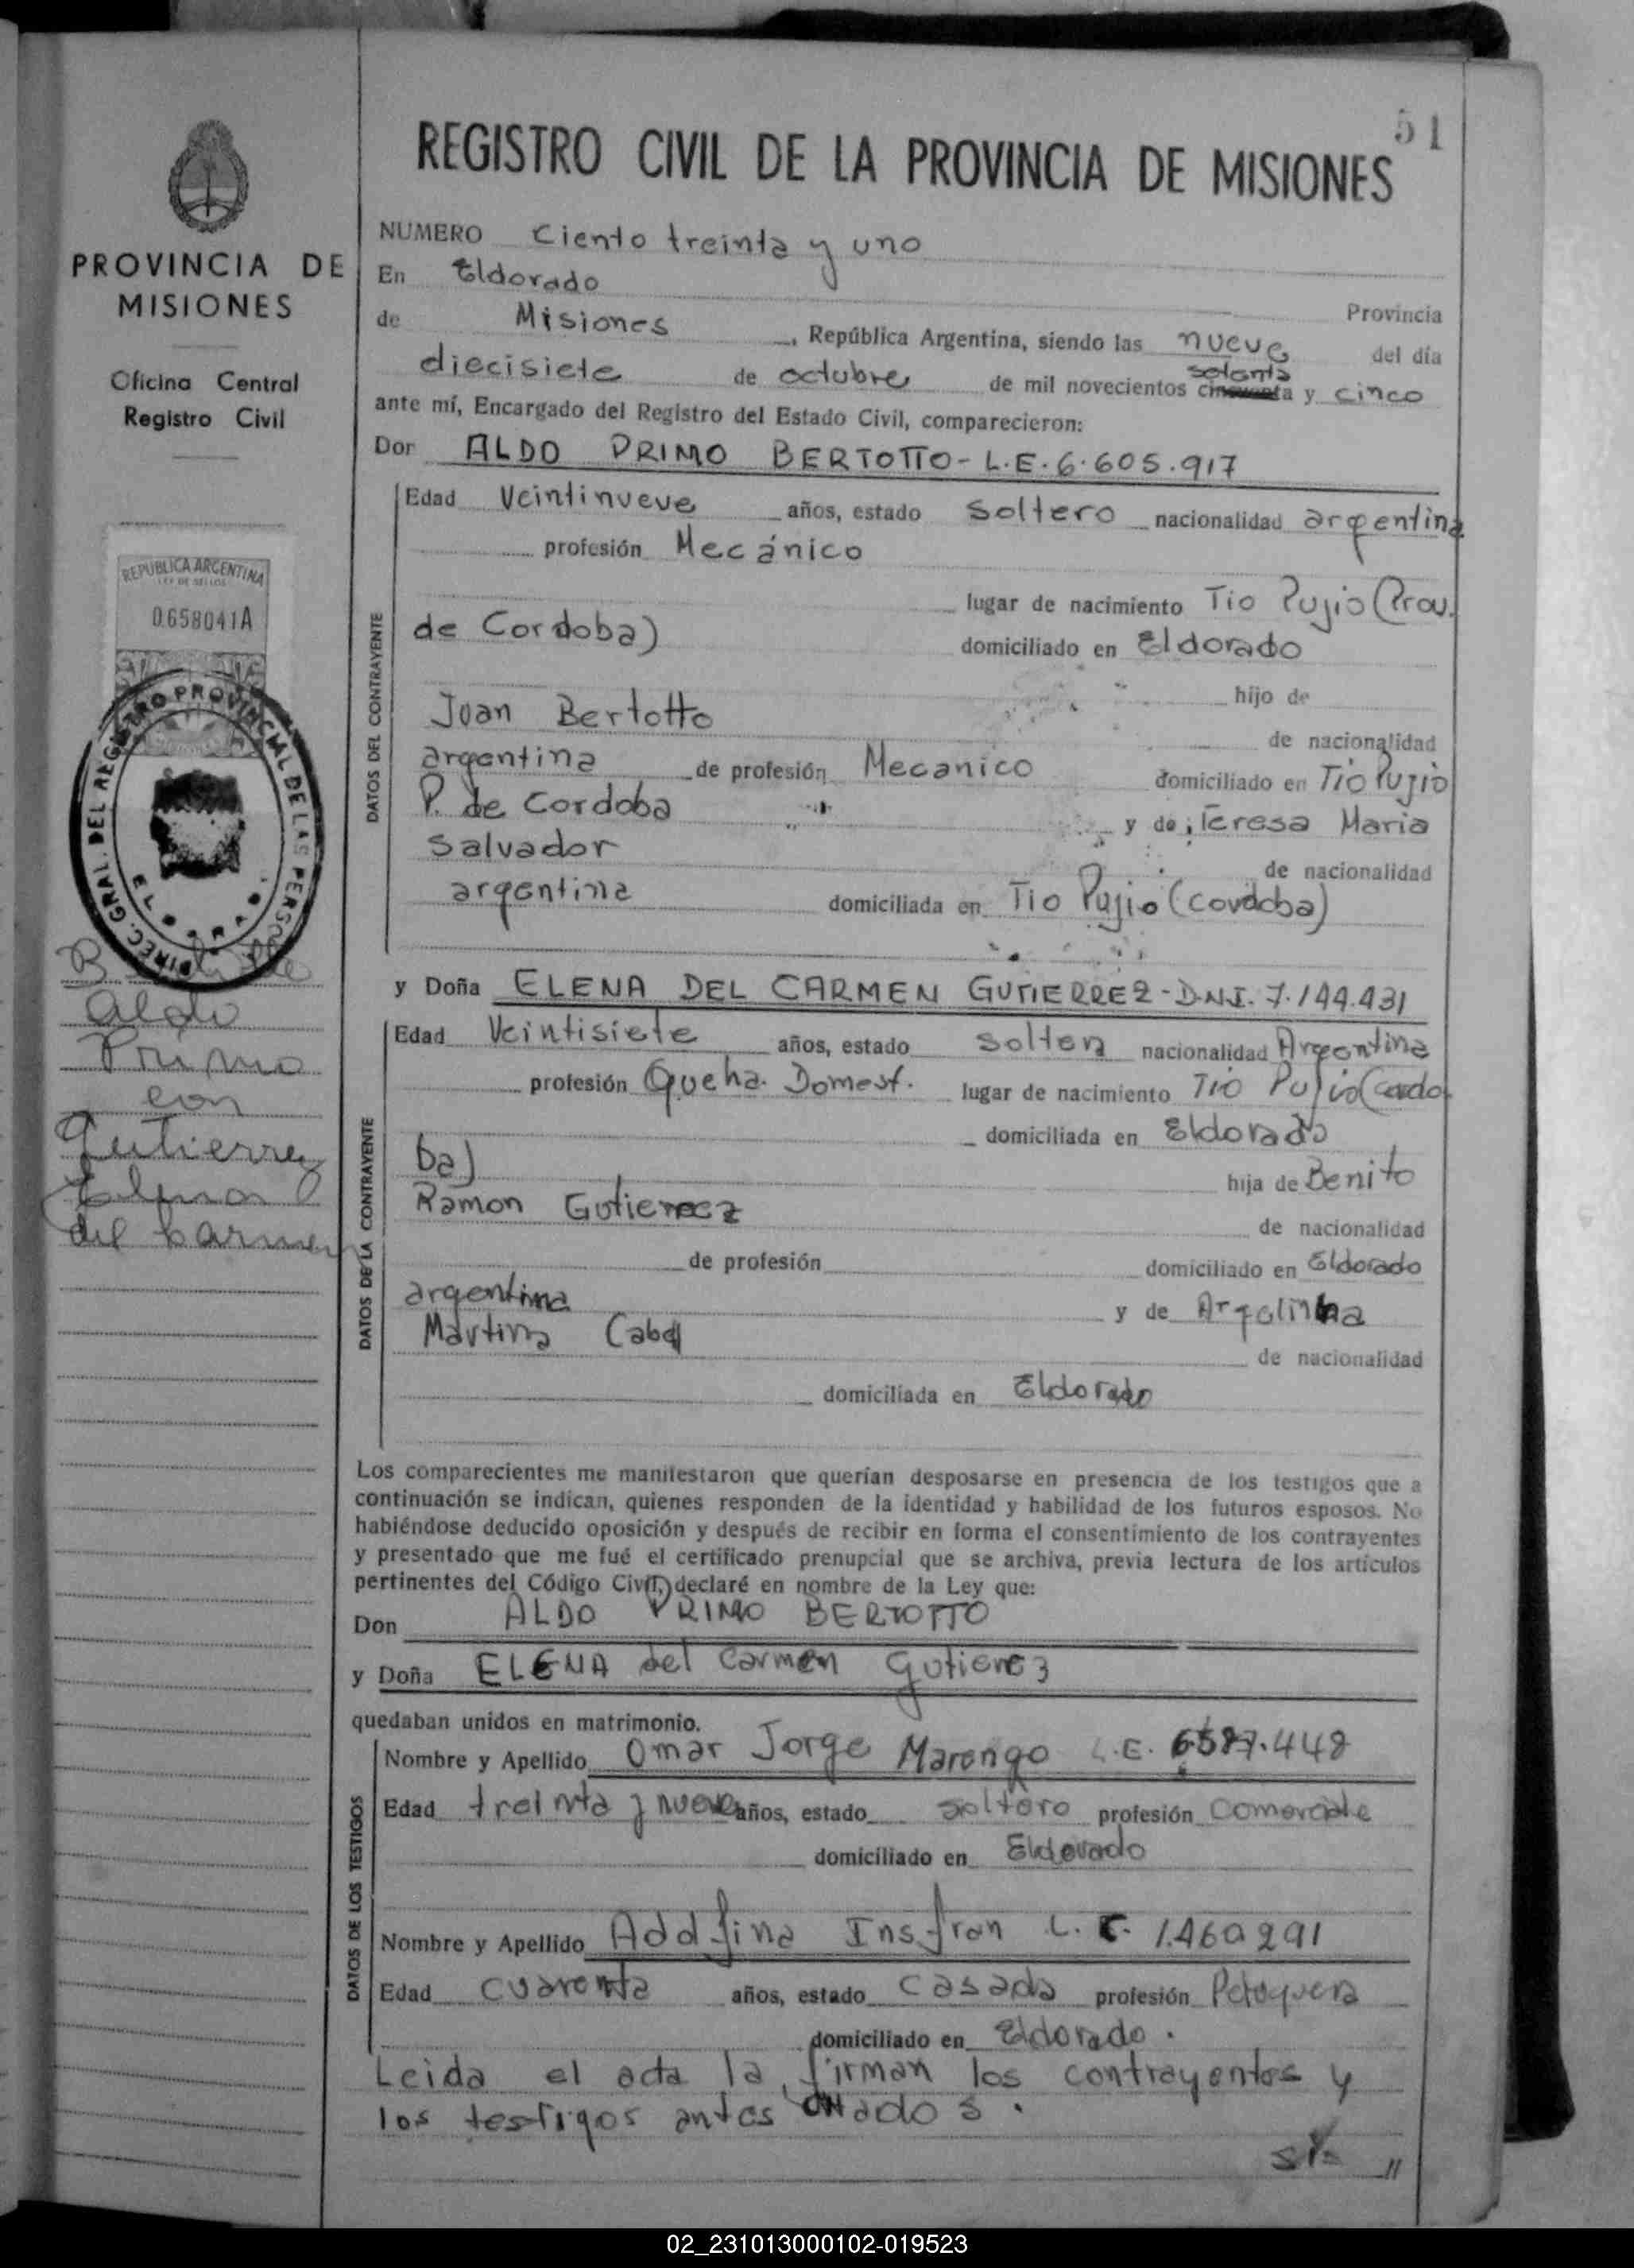 51
REGISTRO CIVIL DE LA PROVINCIA DE MISIONES
PROVINCIA DE
MISIONES
Oficina Central
Registro Civil
REPUBLICA ARGENTINA
LEY DE SELLOS
0.658041A
DIREC. GRAL. DEL REGISTRO PROVINCIAL DE LAS PERSO
Aldo
Primo
con
Gutierrez
Elena
del Carmen
NUMERO Ciento treinta y uno
En Eldorado
Provincia
de Misiones, República Argentina, siendo las nueve del día
setenta
diecisiete de octubre de mil novecientos cincuenta y cinco
ante mí, Encargado del Registro del Estado Civil, comparecieron:
Don ALDO PRIMO BERTOTTO - L.E. 6.605.917
DATOS DEL CONTRAYENTE
Edad Veintinueve años, estado soltero nacionalidad argentina
profesión Mecánico
lugar de nacimiento Tio Pujio (Prov.
de Cordoba) domiciliado en Eldorado
hijo de
Juan Bertotto
de nacionalidad
argentina de profesión Mecanico domiciliado en Tio Pujio
P. de Cordoba y de Teresa Maria
Salvador
de nacionalidad
argentina domiciliada en Tio Pujio (Cordoba)
y Doña ELENA DEL CARMEN GUTIERREZ - D.N.I. 7.144.431
DATOS DE LA CONTRAYENTE
Edad Veintisiete años, estado soltera nacionalidad Argentina
profesión Queha. Domest. lugar de nacimiento Tio Pujio (Cordo
domiciliada en Eldorado
ba)
hija de Benito
Ramon Gutierrez
de nacionalidad
de profesión domiciliado en Eldorado
argentina
y de
Martina
de nacionalidad
domiciliada en Eldorado
Los comparecientes me manifestaron que querían desposarse en presencia de los testigos que a
continuación se indican, quienes responden de la identidad y habilidad de los futuros esposos. No
habiéndose deducido oposición y después de recibir en forma el consentimiento de los contrayentes
y presentado que me fué el certificado prenupcial que se archiva, previa lectura de los artículos
pertinentes del Código Civil, declaré en nombre de la Ley que:
Don ALDO PRIMO BERTOTTO
y Doña ELENA del Carmen Gutierrez
quedaban unidos en matrimonio.
DATOS DE LOS TESTIGOS
Nombre y Apellido Omar Jorge Marengo L.E. 6587.448
Edad treinta y nueve años, estado soltero profesión
domiciliado en Eldorado
Nombre y Apellido Adolfina Insfran L.C. 1.460291
Edad cuarenta años, estado casada profesión
domiciliado en Eldorado.
Leida el acta la firman los contrayentes y
los testigos antes citados.
02_231013000102-019523